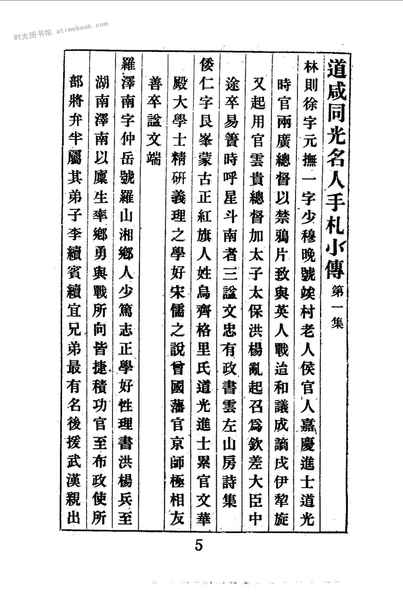 时光图书馆 atimebook.com
道咸同光名人手札小傳 第一集
林則徐字元撫一字少穆晚號竢村老人侯官人嘉慶進士道光
時官兩廣總督以禁鴉片致與英人戰迨和議成謫戍伊犂旋
又起用官雲貴總督加太子太保洪楊亂起召爲欽差大臣中
途卒易簀時呼星斗南者三諡文忠有政書雲左山房詩集
倭仁字艮峯蒙古正紅旗人姓烏齊格里氏道光進士累官文華
殿大學士精研義理之學好宋儒之說曾國藩官京師極相友
善卒諡文端
羅澤南字仲岳號羅山湘鄉人少篤志正學好性理書洪楊兵至
湖南澤南以廩生率鄉勇與戰所向皆捷積功官至布政使所
部將弁半屬其弟子李續賓續宜兄弟最有名後援武漢親出
5